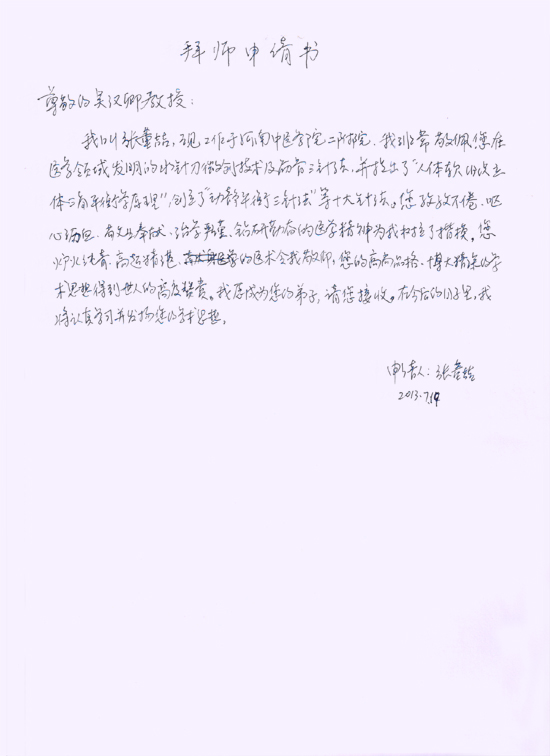 拜师申请书
尊敬的吴汉卿教授：
我叫张董喆，现工作于河南中医学院二附院。我非常敬佩您在
医学领域发明的水针刀微创技术及筋骨三针法，并提出了“人体软组织立
体三角平衡学原理”，创立了“动静平衡三针法”等十大针法。您孜孜不倦、呕
心沥血、奉献、治学严谨、钻研勤奋的医学精神为我们树立了楷模。您
炉火纯青、高超精湛、的医术令我敬仰，您的高尚品格、博大精深的学
术思想得到世人的高度赞赏。我愿成为您的弟子，请您接收。在今后的日子里，我
将认真学习并发扬您的学术思想。
申请人：张董喆
2013.7.14